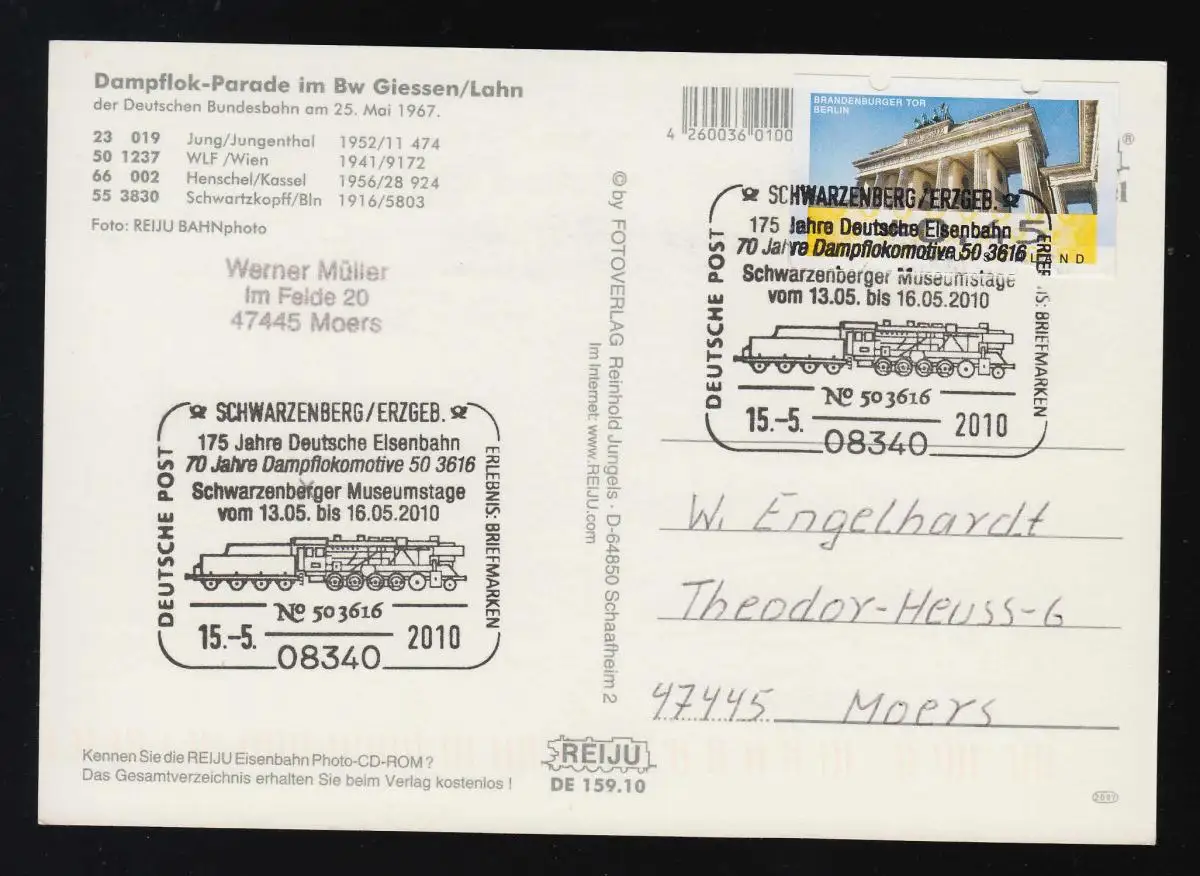 Dampflok-Parade im Bw Giessen/Lahn
der Deutschen Bundesbahn am 25. Mai 1967.
23 019 Jung/Jungenthal 1952/11 474
50 1237 WLF /Wien 1941/9172
66 002 Henschel/Kassel 1956/28 924
55 3830 Schwartzkopff/Bln 1916/5803
Foto: REIJU BAHNphoto
Werner Müller
Im Felde 20
47445 Moers
SCHWARZENBERG/ERZGEB.
175 Jahre Deutsche Eisenbahn
70 Jahre Dampflokomotive 50 3616
Schwarzenberger Museumstage
vom 13.05. bis 16.05.2010
DEUTSCHE POST
ERLEBNIS: BRIEFMARKEN
No 50 3616
15.-5. 2010
08340
Kennen Sie die REIJU Eisenbahn Photo-CD-ROM ?
Das Gesamtverzeichnis erhalten Sie beim Verlag kostenlos !
© by FOTOVERLAG Reinhold Jungels · D-64850 Schaafheim 2
Im Internet: www.REIJU.com
REIJU
DE 159.10
4 260036 0100
BRANDENBURGER TOR
BERLIN
SCHWARZENBERG/ERZGEB.
175 Jahre Deutsche Eisenbahn
70 Jahre Dampflokomotive 50 3616
Schwarzenberger Museumstage
vom 13.05. bis 16.05.2010
DEUTSCHE POST
ERLEBNIS: BRIEFMARKEN
No 50 3616
15.-5. 2010
08340
W. Engelhardt
Theodor-Heuss-6
47445 Moers
2097